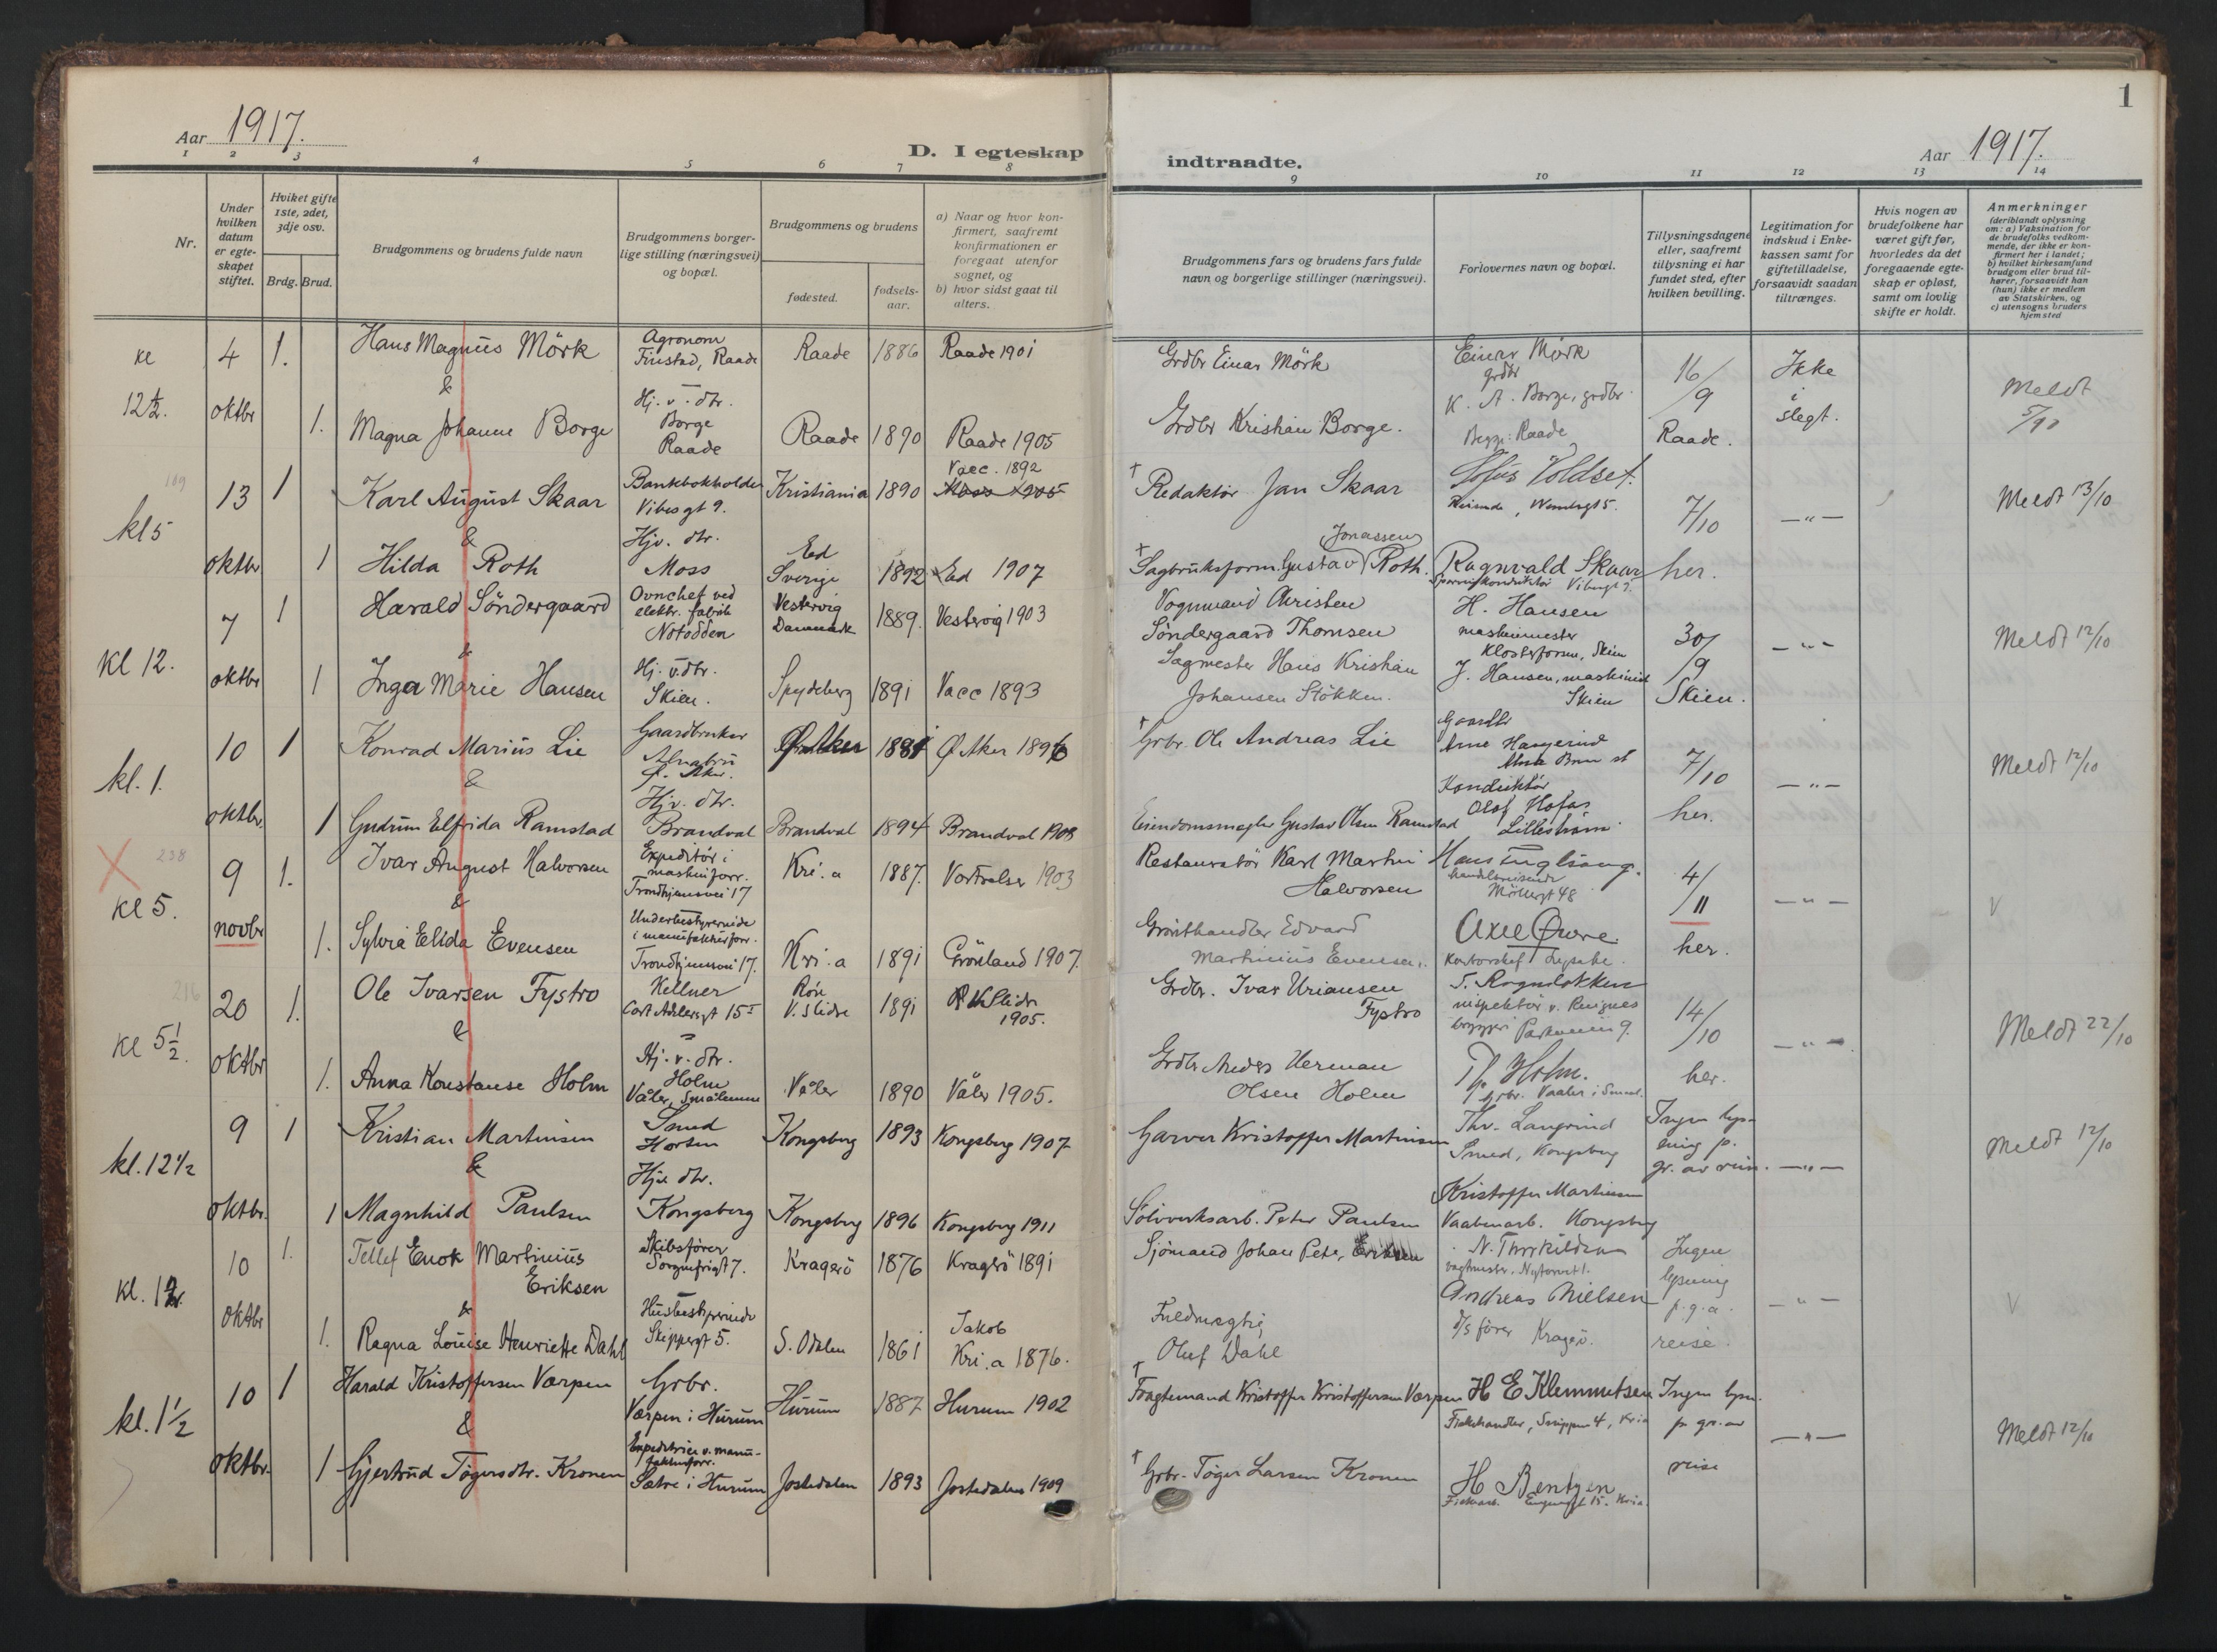 1
Aar 1917.
D. I egteskap indtraadte.
Aar 1917.
1 2 3 4 5 6 7 8 9 10 11 12 13 14
Nr.
Under hvilken datum er egteskapet stiftet.
Hviket gifte 1ste, 2det, 3dje osv.
Brdg. Brud.
Brudgommens og brudens fulde navn
Brudgommens borgerlige stilling (næringsvei) og bopæl.
Brudgommens og brudens
fødested.
fødselsaar.
a) Naar og hvor konfirmert, saafremt konfirmationen er foregaat utenfor sognet, og
b) hvor sidst gaat til alters.
Brudgommens fars og brudens fars fulde navn og borgerlige stillinger (næringsvei).
Forlovernes navn og bopæl.
Tillysningsdagene eller, saafremt tillysning ei har fundet sted, efter hvilken bevilling.
Legitimation for indskud i Enkekassen samt for giftetilladelse, forsaavidt saadan tiltrænges.
Hvis nogen av brudefolkene har været gift før, hvorledes da det foregaaende egteskap er opløst, samt om lovlig skifte er holdt.
Anmerkninger
(deriblandt oplysning om: a) Vaksination for de brudefolks vedkommende, der ikke er konfirmert her i landet; b) hvilket kirkesamfund brudgom eller brud tilhører, forsaavidt han (hun) ikke er medlem av Statskirken, og c) utensogns bruders hjemsted
kl 12½. 4 oktbr 1. Hans Magnus Mörk Agronom Finstad, Raade Raade 1886 Raade 1901 Grdbr Einar Mörk Einar Mørk grdbr 16/9 Raade. Ikke i slegt. Meldt 5/10
&
1. Magna Johanne Borge Hj. v. dtr. Borge Raade Raade 1890 Raade 1905 Grdbr Kristian Borge. K. A. Borge, grdbr. Begge: Raade
kl 5 13 oktbr 1 Karl August Skaar Bankbokholder Vibesgt 9. Kristiania 1890 Vacc. 1892 Redaktør Jan Skaar Sofus Voldset. 7/10 her. —"— Meldt 13/10
&
1 Hilda Roth Hjv. dtr. Moss Ed Sverige 1892 Ed 1907 Sagbruksform. Gustav (Jonassen) Roth. Ragnvald Skaar
kl 12. 7 oktbr 1 Harald Söndergaard Ovnchef ved elektr. fabrik Notodden Vestervig Danmark 1889. Vestervig 1903 Vognmand Christen Söndergaard Thomsen H. Hansen maskinmester Klosterfossen, Skien 30/9 Skien. —"— Meldt 12/10
&
1 Inga Marie Hansen Hj. v. dtr. Skien. Spydeberg 1891 Vacc 1893 Sagmester Hans Kristian Johansen Stökken. J. Hansen, maskinist Skien
kl. 1. 10 oktbr. 1 Konrad Marius Lie Gaardbruker Alnabru Ø. Aker. Ø. Aker 1881 Ø Aker 1896 Grbr. Ole Andreas Lie Gaardbr Arne Haugerud 7/10 her. —"— Meldt 12/10
&
1 Gudrun Elfrida Ramstad Hjv. dtr. Brandval Brandval 1894 Brandval 1908 Eiendomsmegler Gustav Olsen Ramstad Konduktör Olof Hofas Lilleström
238 kl 5. 9 novbr 1. Ivar August Halvorsen Expeditör i maskinforr. Trondhjemsvei 17 Kri.a 1887. Vor Frelser 1903 Restauratör Karl Martin Halvorsen Hans Fuglsang. handelsreisende Möllergt 48 4/11 her. —"— V
&
1. Sylvia Elida Evensen Underbestyrerinde i manufakturforr. Trondhjemsvei 17. Kri.a 1891 Grönland 1907. Grönthandler Edvard Martinius Evensen. Axel Øvere. Kontorchef
kl 5½ 20 oktbr 1. Ole Ivarsen Fystro Kellner Cort Adelersgt 15 I Røn V. Slidre 1891 V. Slidre 1905. Grdbr. Ivar Uriansen Fystro T. Rogndokken inspektör v. Ringnes bryggeri Parkveien 9. 14/10 her. —"— Meldt 22/10
&
1. Anna Konstanse Holm Hj. v. dtr. Holm Våler, Smålenene Våler 1890 Våler 1905. Grdbr. Anders Herman Olsen Holm Th. Holm. grbr. Vaaler i Smaal.
kl. 12½ 9 oktbr. 1 Kristian Martinsen Smed Horten Kongsberg 1893 Kongsberg 1907 Garver Kristoffer Martinsen Thv. Langrind Smed, Kongsberg Ingen lysning p. gr. av reise. —"— Meldt 12/10
&
1 Magnhild Paulsen Hjv. dtr. Kongsberg Kongsberg 1896 Kongsberg 1911 Sölvverksarb. Peter Paulsen Kristoffer Martinsen Vaabenarb. Kongsberg
kl. 1½. 10 oktbr 1. Tellef Enok Martinius Eriksen Skibsförer Sorgenfrigt 7. Kragerö 1876 Kragerö 1891 Sjömand Johan Peter Eriksen N. Thorkildsen vagtmester. Nytorvet 1. Ingen lysning p. g. a. reise. —"— V
&
1. Ragna Louise Henriette Dahl Husbestyrerinde Skippergt 5. S. Odalen 1861 Jakob Kri.a 1876. Fuldmægtig Oluf Dahl Andreas Nielsen d/s förer Kragerö.
kl. 1½ 10 oktbr. 1 Harald Kristoffersen Værpen Grbr. Værpen i Hurum Hurum 1887 Hurum 1902 Fragtemand Kristoffer Kristoffersen Værpen H E Klemmetsen Fiskehandler, Kria Ingen lysn. p. gr. av reise —"— Meldt 12/10
&
1 Gjertrud Tögersdtr. Kronen Expeditrice v. manufakturforr. Sætre i Hurum Jostedalen 1893 Jostedalen 1909 Grbr. Töger Larsen Kronen H Bentzen Kria.